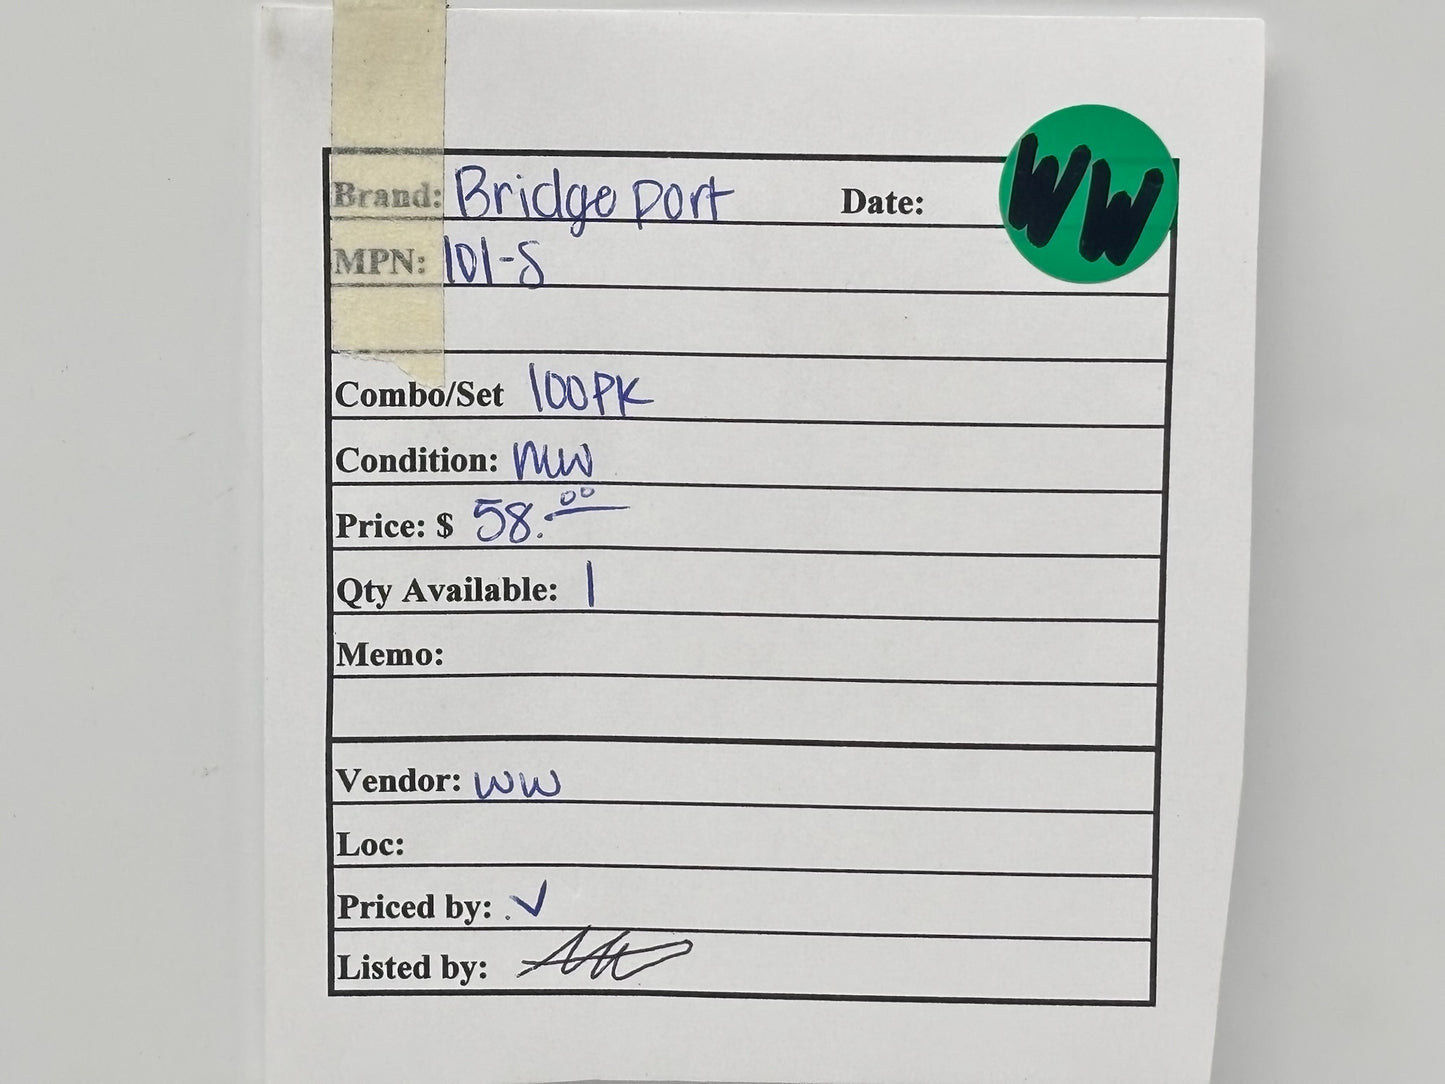 WW
Brand: Bridgeport Date:
MPN: 101-S
Combo/Set 100PK
Condition: NW
Price: $ 58.00
Qty Available: 1
Memo:
Vendor: WW
Loc:
Priced by: ✓
Listed by: